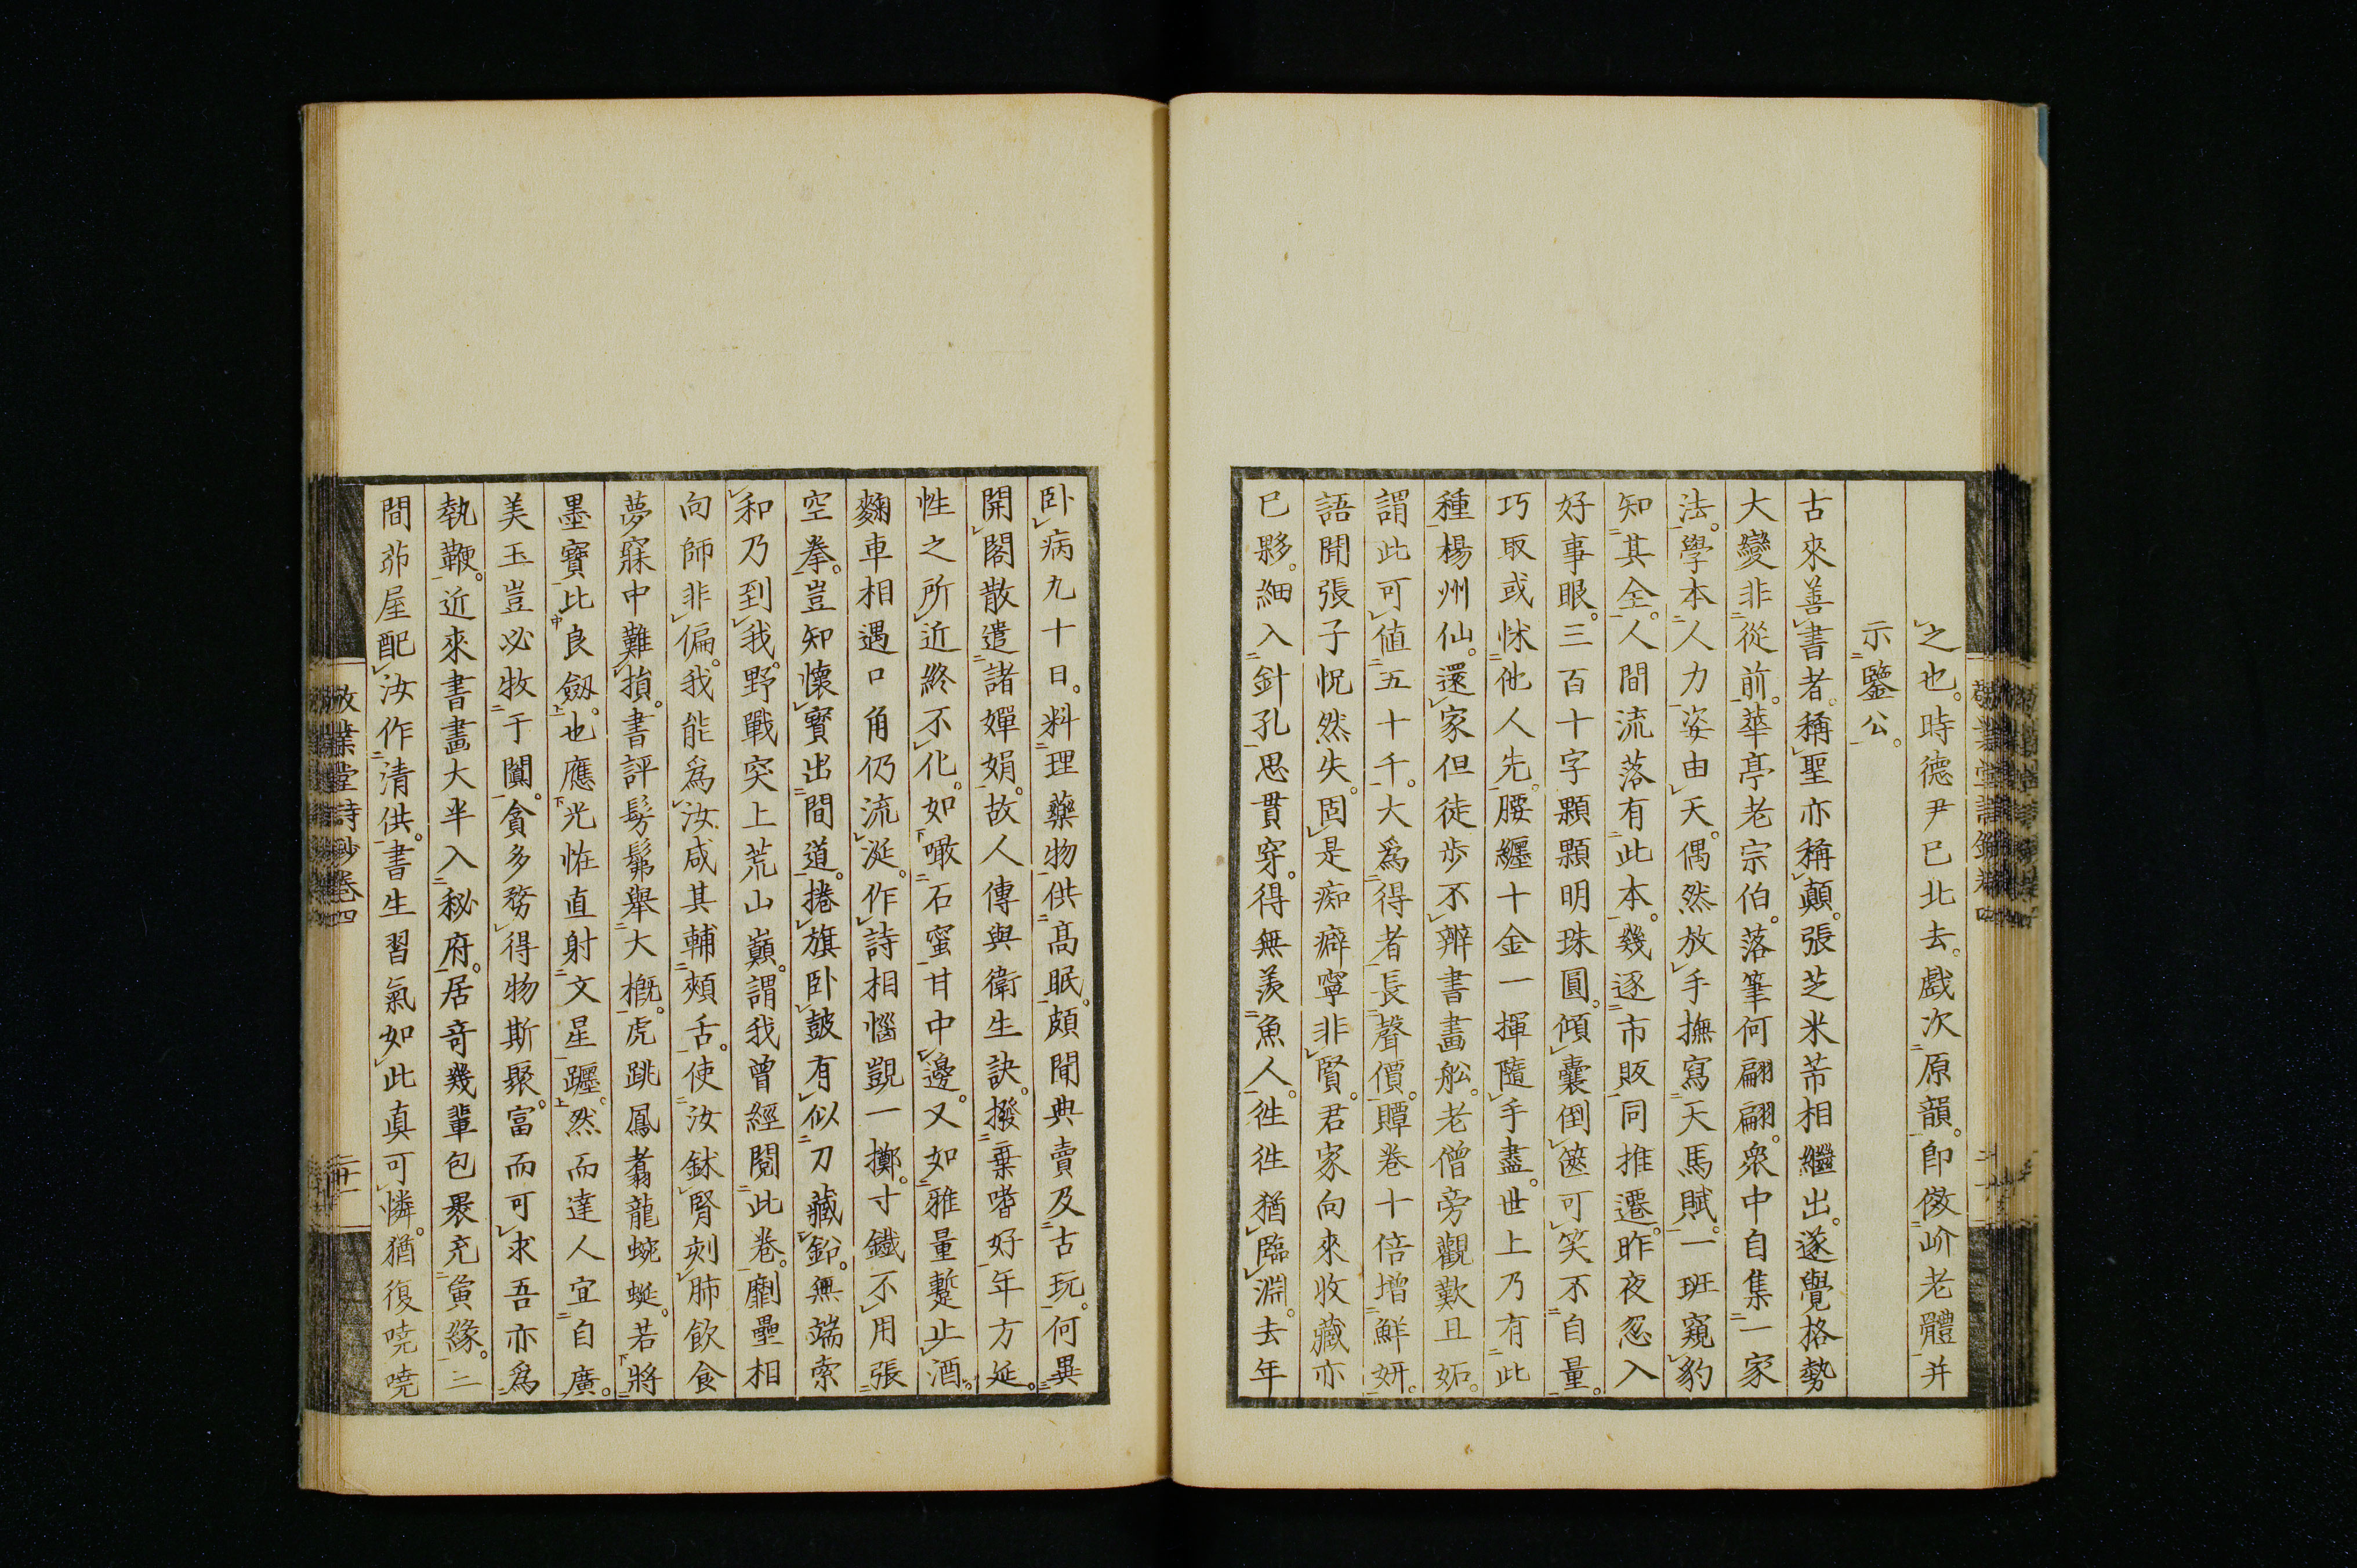 之也。時德尹已北去。戲次原韻。卽傚岕老體并
示鑒公。
古來善書者。稱聖亦稱顛。張芝米芾相繼出。遂覺格勢
大變非從前。華亭老宗伯。落筆何翩翩。衆中自集一家
法。學本人力姿由天。偶然放手撫寫天馬賦。一班窺豹
知其全。人間流落有此本。幾逐市販同推遷。昨夜忽入
好事眼。三百十字顆顆明珠圓。傾囊倒篋可笑不自量。
巧取或怵他人先。腰纏十金一揮隨手盡。世上乃有此
種楊州仙。還家但徒步不辨書畫船。老僧旁觀歎且妬。
謂此可値五十千。大爲得者長聲價。贉卷十倍增鮮妍。
語聞張子怳然失。固是痴癖寧非賢。君家向來收藏亦
已夥。細入針孔思貫穿。得無羨魚人。徃徃猶臨淵。去年
卧病九十日。料理藥物供高眠。頗聞典賣及古玩。何異
開閤散遣諸嬋娟。故人傳與衛生訣。撥棄嗜好年方延。
性之所近終不化。如噉石蜜甘中邊。又如雅量蹔止酒。
麴車相遇口角仍流涎。作詩相惱覬一擲。寸鐵不用張
空拳。豈知懷寳出間道。捲旗卧皷有似刀藏鉛。無端索
和乃到我。野戰突上荒山巔。謂我曾經閱此卷。劘壘相
向師非偏。我能爲汝咸其輔頰舌。使汝鉥腎刻肺飲食
夢寐中難損。書評髣髴舉大槪。虎跳鳳翥龍蜿蜒。若將
墨寶比良劔也。應光恠直射文星躔。然而達人宜自廣。
美玉豈必牧于闐。貪多務得物斯聚。富而可求吾亦爲
執鞭。近來書畫大半入秘府。居奇幾輩包裹充夤緣。三
間茆屋配汝作清供。書生習氣如此真可憐。猶復哓哓
放業堂詩鈔卷四
二十一